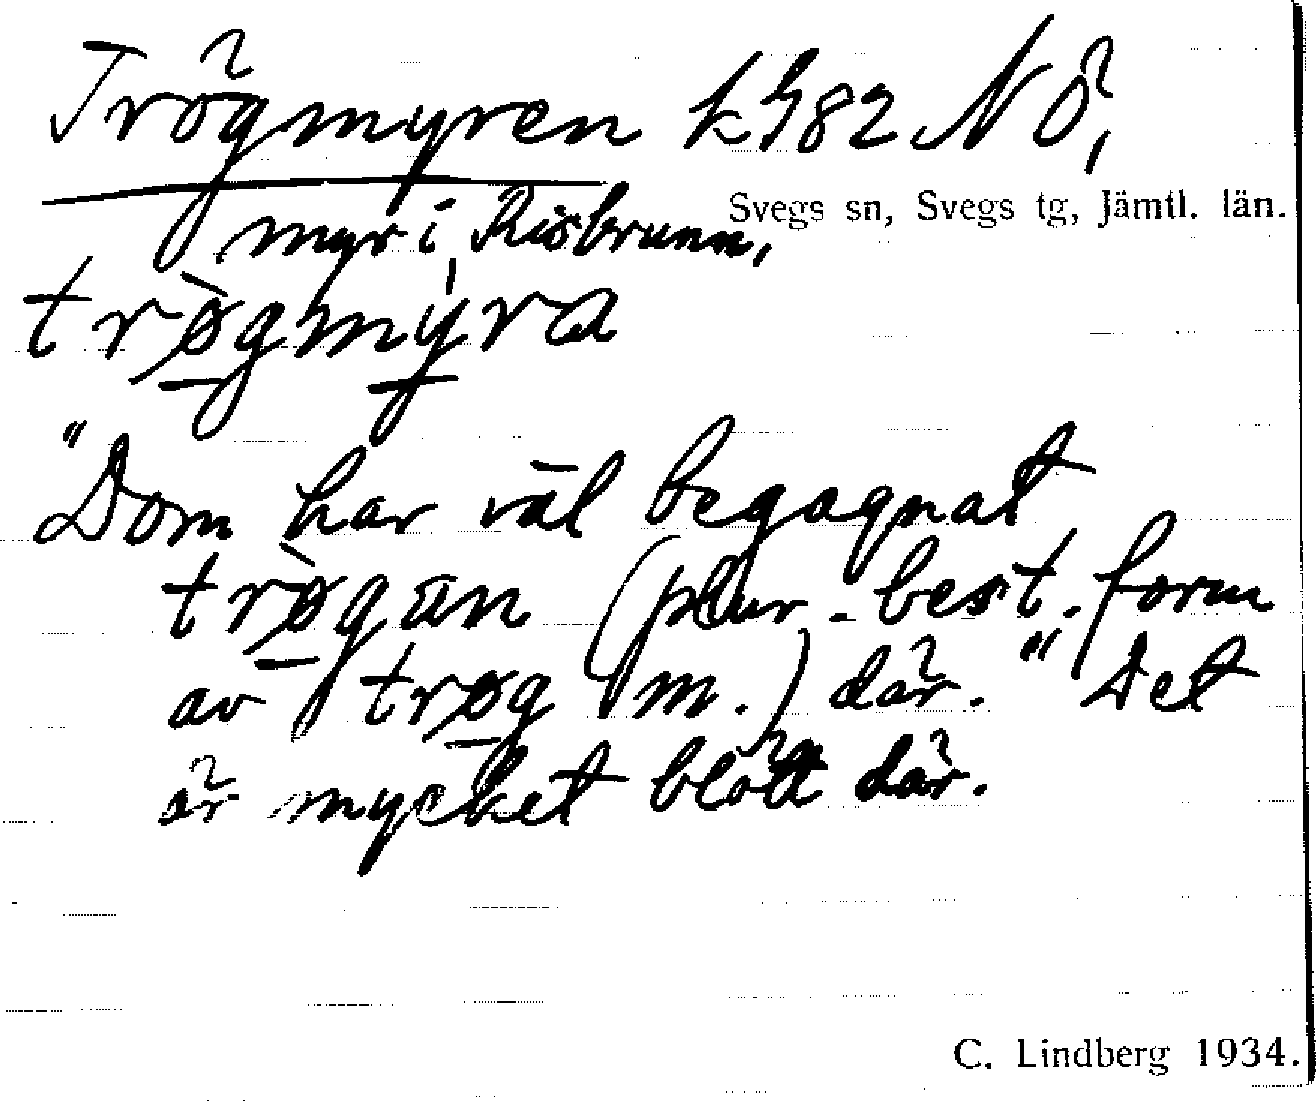 Trögmyren k 982 NÖ,
Svegs sn, Svegs tg, Jämtl. län.
myr i Risbrunn,
trø̀gmýra
"Dom har väl begagnat
trø̀gan (plur. best. form
av trøg m.) där." Det
är mycket blött där.
C. Lindberg 1934.